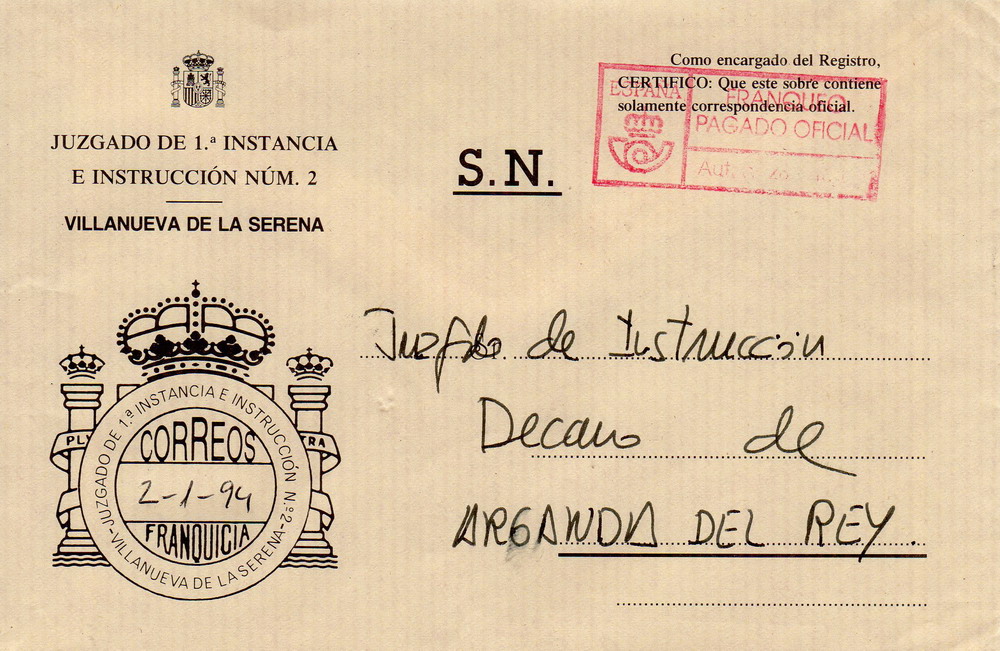 JUZGADO DE 1.ª INSTANCIA
E INSTRUCCIÓN NÚM. 2
VILLANUEVA DE LA SERENA
S.N.
Como encargado del Registro,
CERTIFICO: Que este sobre contiene
solamente correspondencia oficial.
ESPAÑA
FRANQUEO
PAGADO OFICIAL
Aut.
Juzgado de Instrucción
Decano de
ARGANDA DEL REY.
JUZGADO DE 1.ª INSTANCIA E INSTRUCCIÓN N.º 2
-VILLANUEVA DE LA SERENA-
CORREOS
2-1-94
FRANQUICIA
PLV
TRA